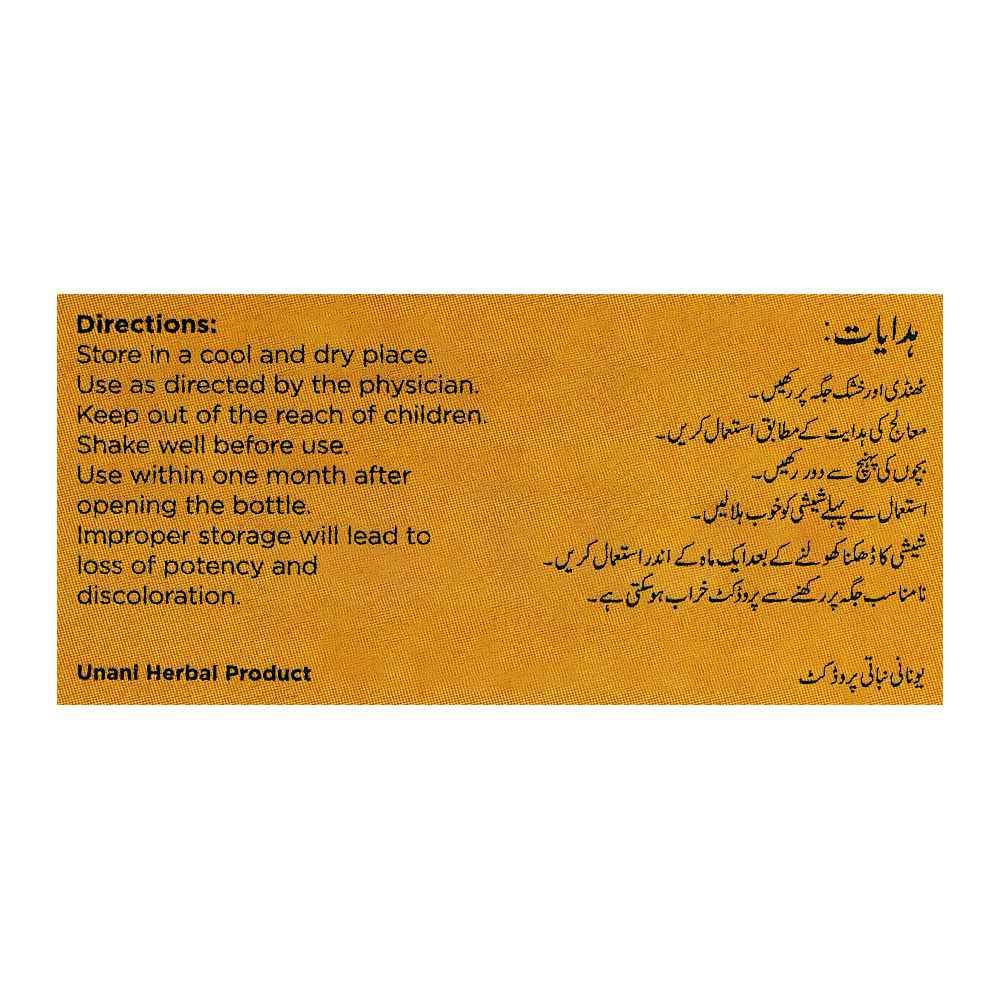 Directions:
Store in a cool and dry place.
Use as directed by the physician.
Keep out of the reach of children.
Shake well before use.
Use within one month after
opening the bottle.
Improper storage will lead to
loss of potency and
discoloration.
Unani Herbal Product
ہدایات:
ٹھنڈی اور خشک جگہ پر رکھیں۔
معالج کی ہدایت کے مطابق استعمال کریں۔
بچوں کی پہنچ سے دور رکھیں۔
استعمال سے پہلے شیشی کو خوب ہلالیں۔
شیشی کا ڈھکنا کھولنے کے بعد ایک ماہ کے اندر استعمال کریں۔
نامناسب جگہ پر رکھنے سے پروڈکٹ خراب ہوسکتی ہے۔
یونانی نباتی پروڈکٹ